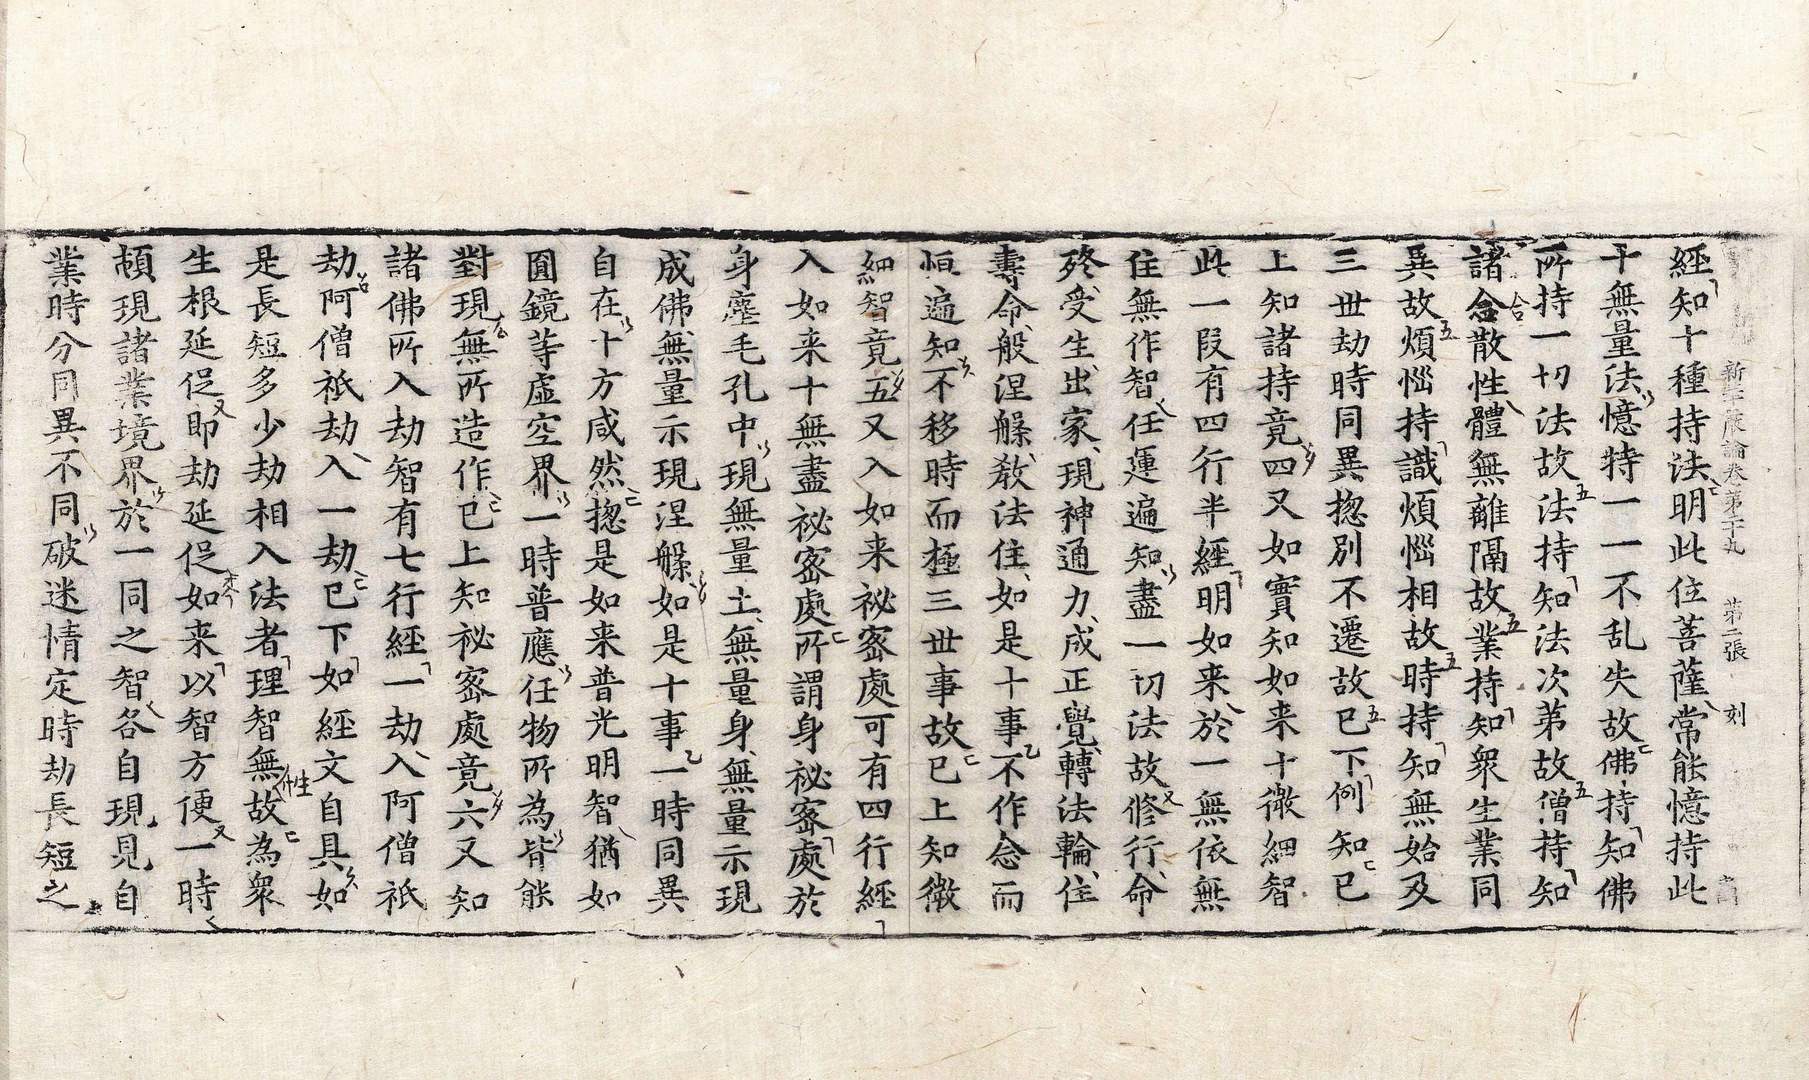 新華嚴論卷第二十九 第二張 刻
經知十種持法明此位菩薩常能憶持此
十無量法憶持一一不乱失故佛持知佛
所持一切法故法持知法次第故僧持知
諸念散性體無離隔故業持知衆生業同
異故煩惱持識煩惱相故時持知無始及
三世劫時同異揔別不遷故已下例知已
上知諸持竟四又如實知如来十微細智
此一段有四行半經明如来於一無依無
住無作智任運遍知盡一切法故修行命
終受生出家現神通力成正覺轉法輪住
壽命般涅槃教法住如是十事不作念而
恒遍知不移時而極三世事故已上知微
細智竟五又入如来祕密處可有四行經
入如来十無盡祕密處所謂身祕密處於
身塵毛孔中現無量土無量身無量示現
成佛無量示現涅槃如是十事一時同異
自在十方咸然揔是如来普光明智猶如
圓鏡等虛空界一時普應任物所為皆能
對現無所造作已上知祕密處竟六又知
諸佛所入劫智有七行經一劫入阿僧祇
劫阿僧祇劫入一劫已下如經文自具如
是長短多少劫相入法者理智無故為衆
生根延促即劫延促如来以智方便一時
頓現諸業境界於一同之智各自現見自
業時分同異不同破迷情定時劫長短之